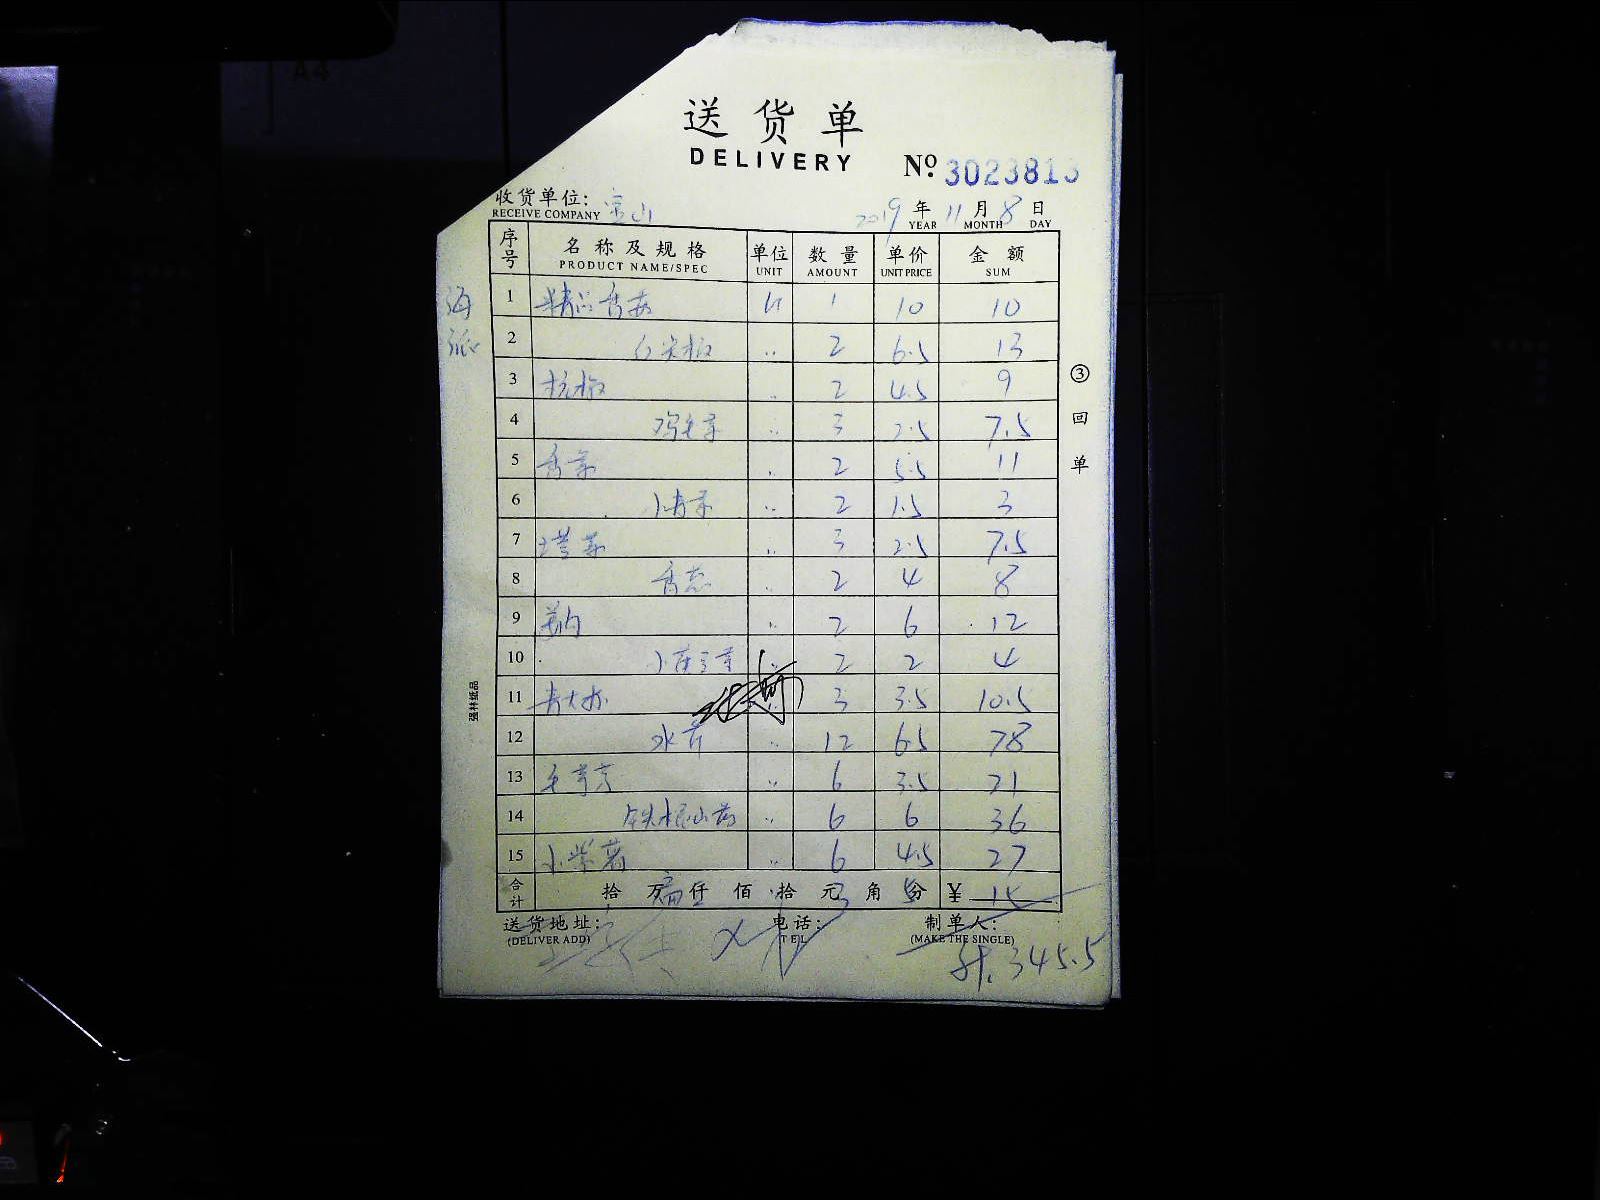 A4
送货单
DELIVERY
Nº. 3023813
收货单位: 宝山
RECEIVE COMPANY
2019年11月8日
YEAR MONTH DAY
序号 名称及规格 单位 数量 单价 金额
PRODUCT NAME/SPEC UNIT AMOUNT UNIT PRICE SUM
海派
1 精品香菇 斤 1 10 10
2 红尖椒 〃 2 6.5 13
3 杭椒 〃 2 4.5 9
4 鸡毛菜 〃 3 2.5 7.5
5 香菜 〃 2 5.5 11
6 小青菜 〃 2 1.5 3
7 塔菜 〃 3 2.5 7.5
8 香葱 〃 2 4 8
9 〃 2 6 12
10 〃 2 2 4
11 青大椒 〃 3 3.5 10.5
12 水芹 〃 12 6.5 78
13 毛芋艿 〃 6 3.5 21
14 铁棍山药 〃 6 6 36
15 小紫薯 〃 6 4.5 27
合计 拾 万 仟 佰 拾 元 角 分 ¥
送货地址: 电话: 制单人:
(DELIVER ADD) TEL (MAKE THE SINGLE)
345.5
③回单
强林纸品